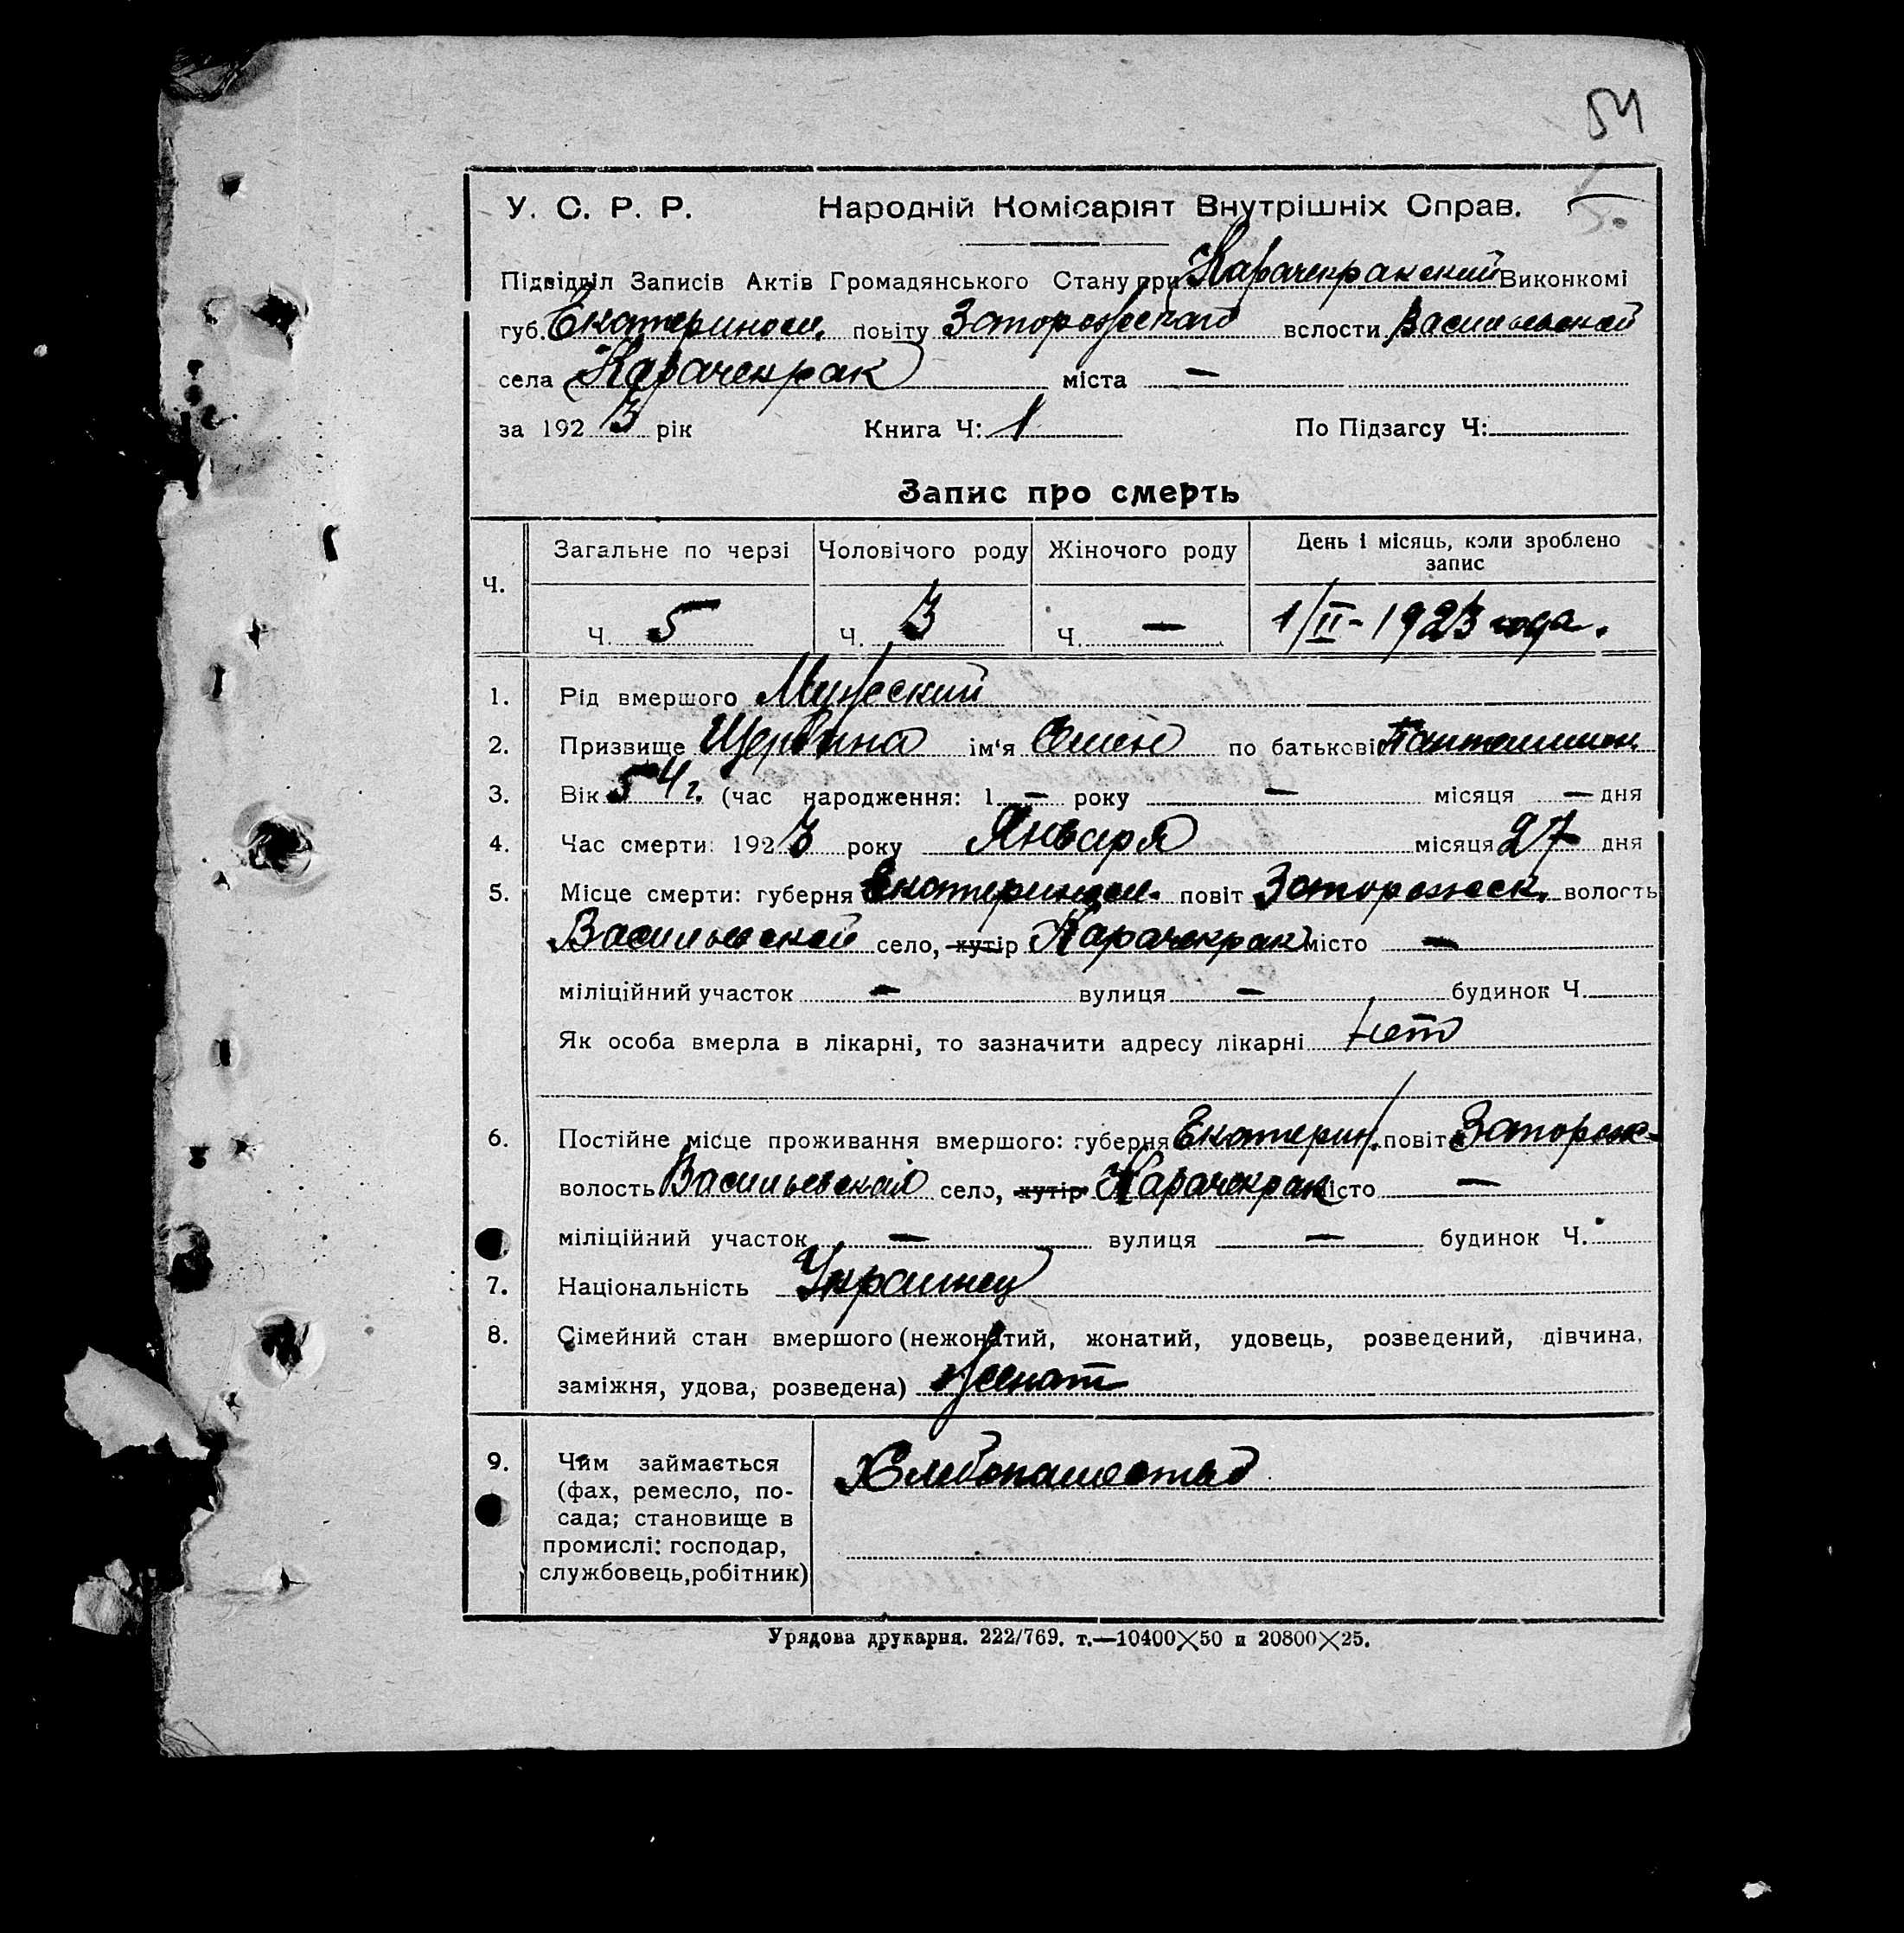 54
У. С. Р. Р. Народній Комісаріят Внутрішніх Справ.
Підвідділ Записів Актів Громадянського Стану при Карачекракский Виконкомі
губ. Екатеринослі. повіту Запорожского вслости Васильевской
села Карачекрак міста —
за 1923 рік Книга Ч: 1 По Підзагсу Ч:
Запис про смерть
Ч. Загальне по черзі Чоловічого роду Жіночого роду День і місяць, коли зроблено запис
Ч. 5 Ч. 3 Ч. — 1/II-1923 года.
1. Рід вмершого Мужеский
2. Призвище Щербина ім'я Семен по батькові
3. Вік 54 г. (час народження: 1 — року — місяця — дня
4. Час смерти: 1923 року Января місяця 27 дня
5. Місце смерти: губерня Екатеринosл. повіт Запорожск. волость
Васильевской село, хутір Карачекрак місто —
міліційний участок — вулиця — будинок Ч.
Як особа вмерла в лікарні, то зазначити адресу лікарні нет
6. Постійне місце проживання вмершого: губерня Екатерин. повіт Запорож-
волость Васильевская село, хутір Карачекрак місто —
міліційний участок — вулиця — будинок Ч.
7. Національність Украинец
8. Сімейний стан вмершого (нежонатий, жонатий, удовець, розведений, дівчина,
заміжня, удова, розведена) женат
9. Чим займається Хлебопашество
(фах, ремесло, по-
сада; становище в
промислі: господар,
службовець, робітник)
Урядова друкарня. 222/769. т.—10400×50 и 20800×25.